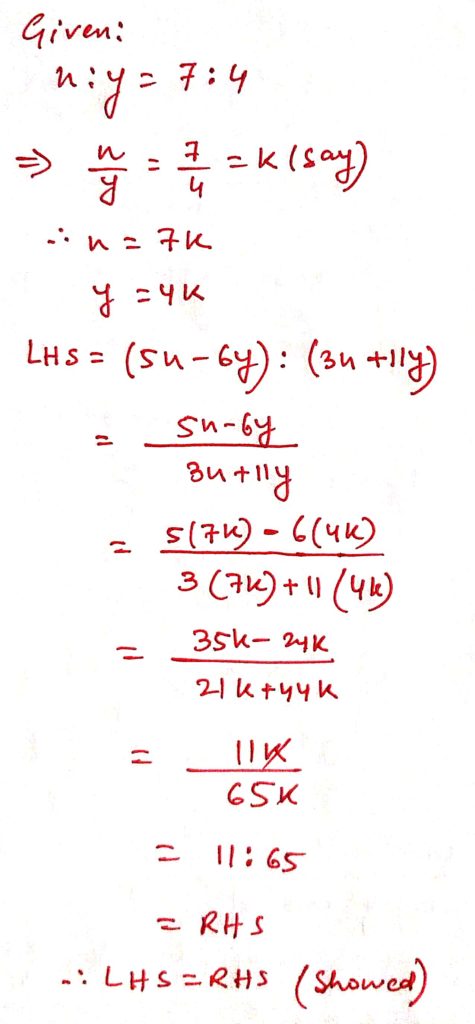 Given:
x:y = 7:4
⇒ x/y = 7/4 = K (say)
∴ x = 7K
y = 4K
LHS = (5x-6y) : (3x+11y)
= 5x-6y / 3x+11y
= 5(7K) - 6(4K) / 3(7K)+11(4K)
= 35K-24K / 21K+44K
= 11K / 65K
= 11:65
= RHS
∴ LHS = RHS (Showed)